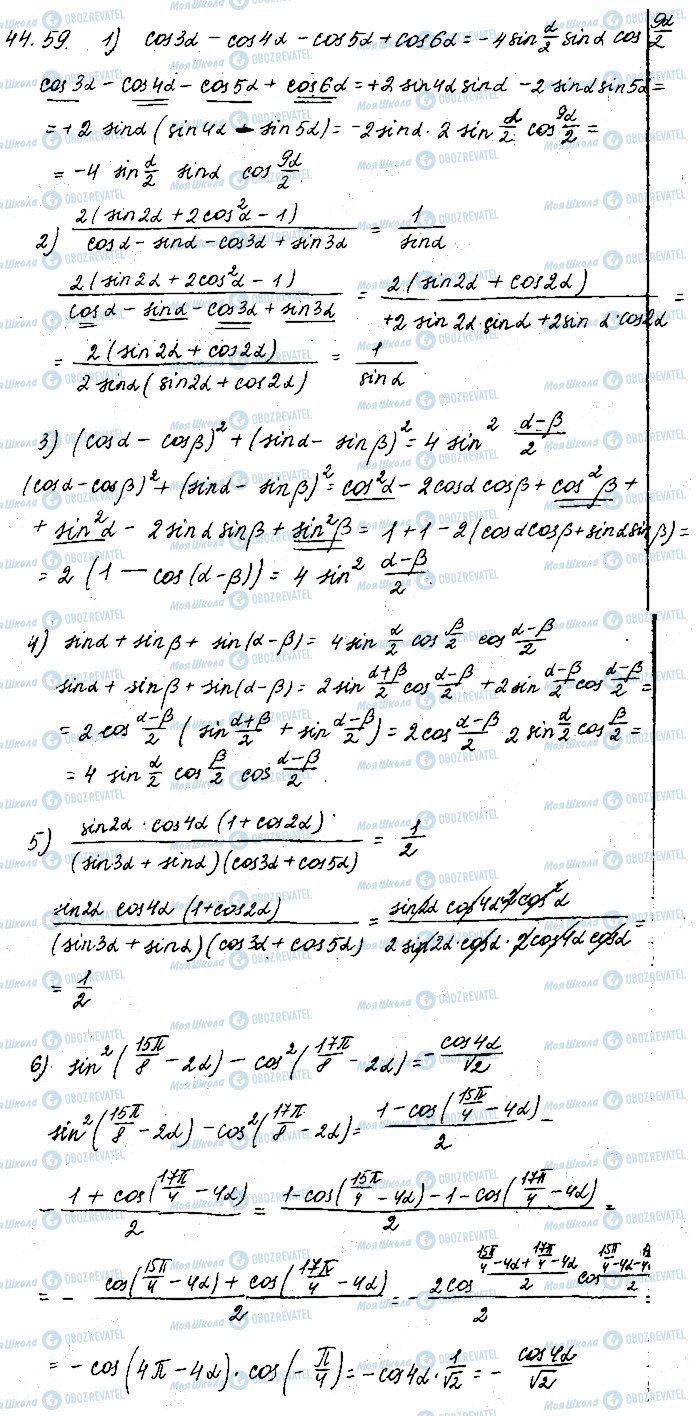 44.59. 1) cos3α − cos4α − cos5α + cos6α = −4 sin α/2 sinα cos 9α/2
cos3α − cos4α − cos5α + cos6α = +2 sin4α sinα − 2 sinα sin5α =
= +2 sinα (sin4α − sin5α) = −2 sinα · 2 sin α/2 cos 9α/2 =
= −4 sin α/2 sinα cos 9α/2
2) 2(sin2α + 2cos²α − 1) / (cosα − sinα − cos3α + sin3α) = 1/sinα
2(sin2α + 2cos²α − 1) / (cosα − sinα − cos3α + sin3α) = 2(sin2α + cos2α) / (+2 sin2α sinα + 2sinα·cos2α) =
= 2(sin2α + cos2α) / (2 sinα (sin2α + cos2α)) = 1/sinα
3) (cosα − cosβ)² + (sinα − sinβ)² = 4 sin² (α−β)/2
(cosα − cosβ)² + (sinα − sinβ)² = cos²α − 2cosα cosβ + cos²β +
+ sin²α − 2 sinα sinβ + sin²β = 1 + 1 − 2(cosα cosβ + sinα sinβ) =
= 2 (1 − cos(α−β)) = 4 sin² (α−β)/2
4) sinα + sinβ + sin(α−β) = 4 sin α/2 cos β/2 cos (α−β)/2
sinα + sinβ + sin(α−β) = 2 sin (α+β)/2 cos (α−β)/2 + 2 sin (α−β)/2 cos (α−β)/2 =
= 2 cos (α−β)/2 (sin (α+β)/2 + sin (α−β)/2) = 2 cos (α−β)/2 2 sin α/2 cos β/2 =
= 4 sin α/2 cos β/2 cos (α−β)/2.
5) sin2α · cos4α (1 + cos2α) / ((sin3α + sinα)(cos3α + cos5α)) = 1/2
sin2α cos4α (1 + cos2α) / ((sin3α + sinα)(cos3α + cos5α)) = sin2α cos4α 2 cos²α / (2 sin2α · cosα · 2 cos4α cosα) =
= 1/2
6) sin²(15π/8 − 2α) − cos²(17π/8 − 2α) = − cos4α/√2
sin²(15π/8 − 2α) − cos²(17π/8 − 2α) = (1 − cos(15π/4 − 4α))/2 −
− (1 + cos(17π/4 − 4α))/2 = (1 − cos(15π/4 − 4α) − 1 − cos(17π/4 − 4α))/2 =
= − (cos(15π/4 − 4α) + cos(17π/4 − 4α))/2 = − 2cos (15π/4 − 4α + 17π/4 − 4α)/2 cos (15π/4 − 4α − /2 / 2 =
= − cos(4π − 4α) · cos(−π/4) = − cos4α · 1/√2 = − cos4α/√2